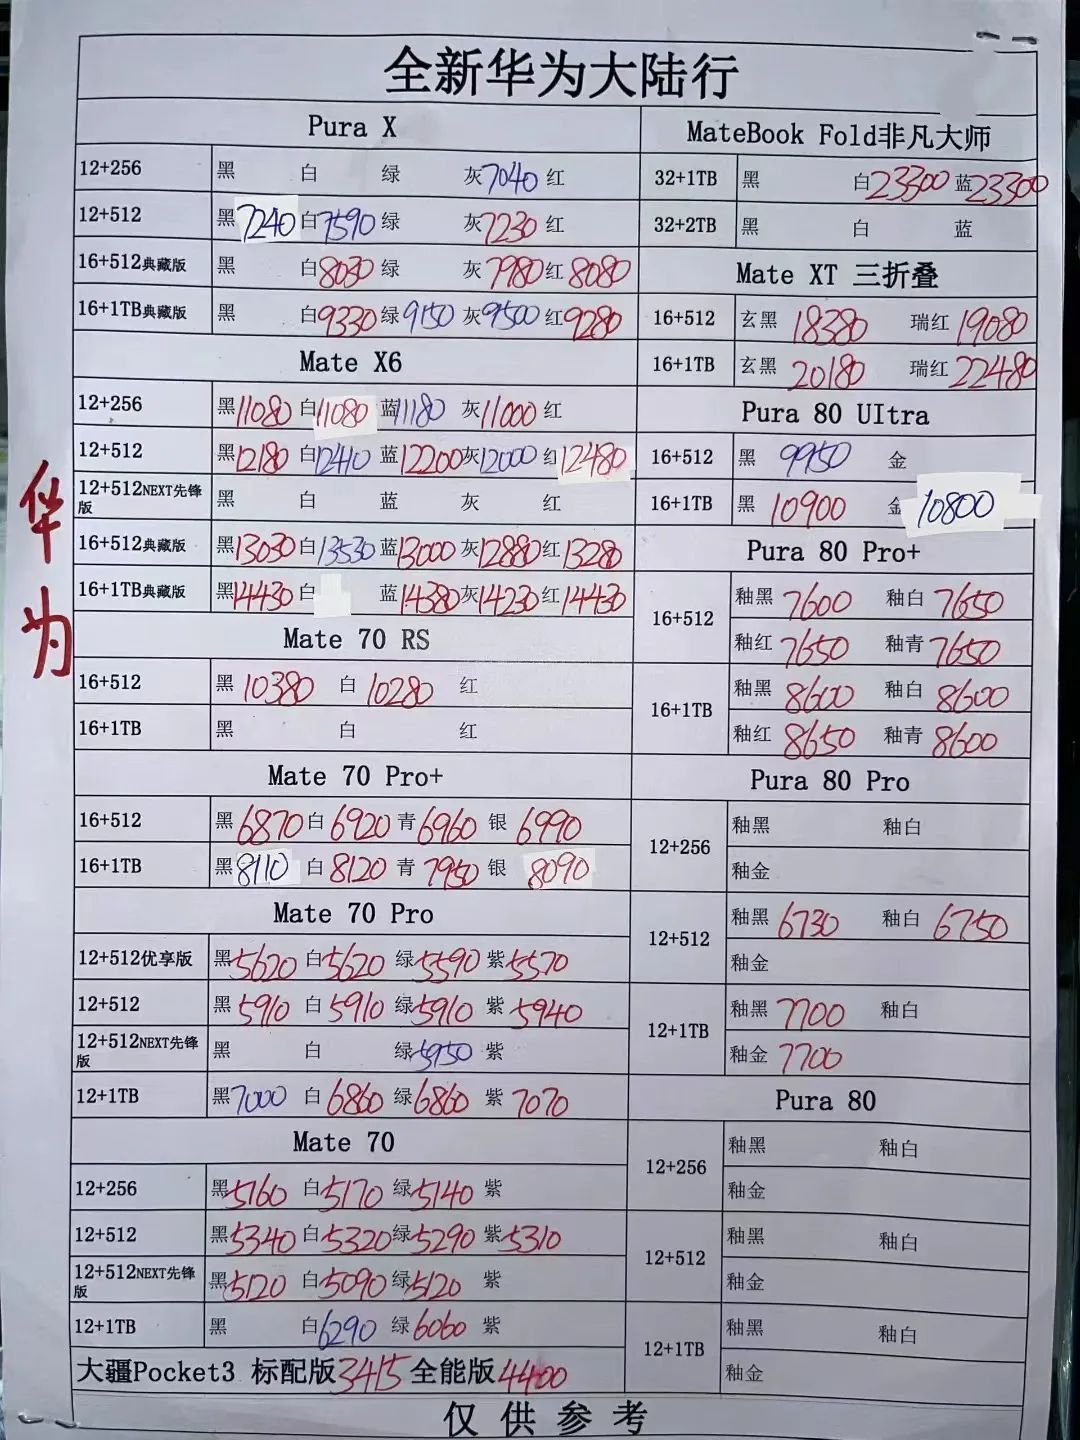 全新华为大陆行
华为
Pura X
12+256 黑 白 绿 灰7040 红
12+512 黑7240 白7590 绿 灰7230 红
16+512典藏版 黑 白8030 绿 灰7980 红8080
16+1TB典藏版 黑 白9330 绿9150 灰9500 红9280
Mate X6
12+256 黑11080 白11080 蓝11180 灰11000 红
12+512 黑12180 白12410 蓝12200 灰12000 红12480
12+512NEXT先锋版 黑 白 蓝 灰 红
16+512典藏版 黑13030 白13530 蓝13000 灰12880 红13280
16+1TB典藏版 黑14430 白 蓝14380 灰14230 红14430
Mate 70 RS
16+512 黑10380 白10280 红
16+1TB 黑 白 红
Mate 70 Pro+
16+512 黑6870 白6920 青6960 银6990
16+1TB 黑8110 白8120 青7950 银8090
Mate 70 Pro
12+512优享版 黑5620 白5620 绿5590 紫5570
12+512 黑5910 白5910 绿5910 紫5940
12+512NEXT先锋版 黑 白 绿5950 紫
12+1TB 黑7000 白6860 绿6860 紫7070
Mate 70
12+256 黑5160 白5170 绿5140 紫
12+512 黑5340 白5320 绿5290 紫5310
12+512NEXT先锋版 黑5120 白5090 绿5120 紫
12+1TB 黑 白6290 绿6060 紫
大疆Pocket3 标配版3415 全能版4400
MateBook Fold非凡大师
32+1TB 黑 白23300 蓝23300
32+2TB 黑 白 蓝
Mate XT 三折叠
16+512 玄黑 18380 瑞红 19080
16+1TB 玄黑 20180 瑞红 22480
Pura 80 UItra
16+512 黑 9950 金
16+1TB 黑 10900 金 10800
Pura 80 Pro+
16+512 釉黑 7600 釉白 7650
釉红 7650 釉青 7650
16+1TB 釉黑 8600 釉白 8600
釉红 8650 釉青 8600
Pura 80 Pro
12+256 釉黑 釉白
釉金
12+512 釉黑 6730 釉白 6750
釉金
12+1TB 釉黑 7700 釉白
釉金 7700
Pura 80
12+256 釉黑 釉白
釉金
12+512 釉黑 釉白
釉金
12+1TB 釉黑 釉白
釉金
仅供参考